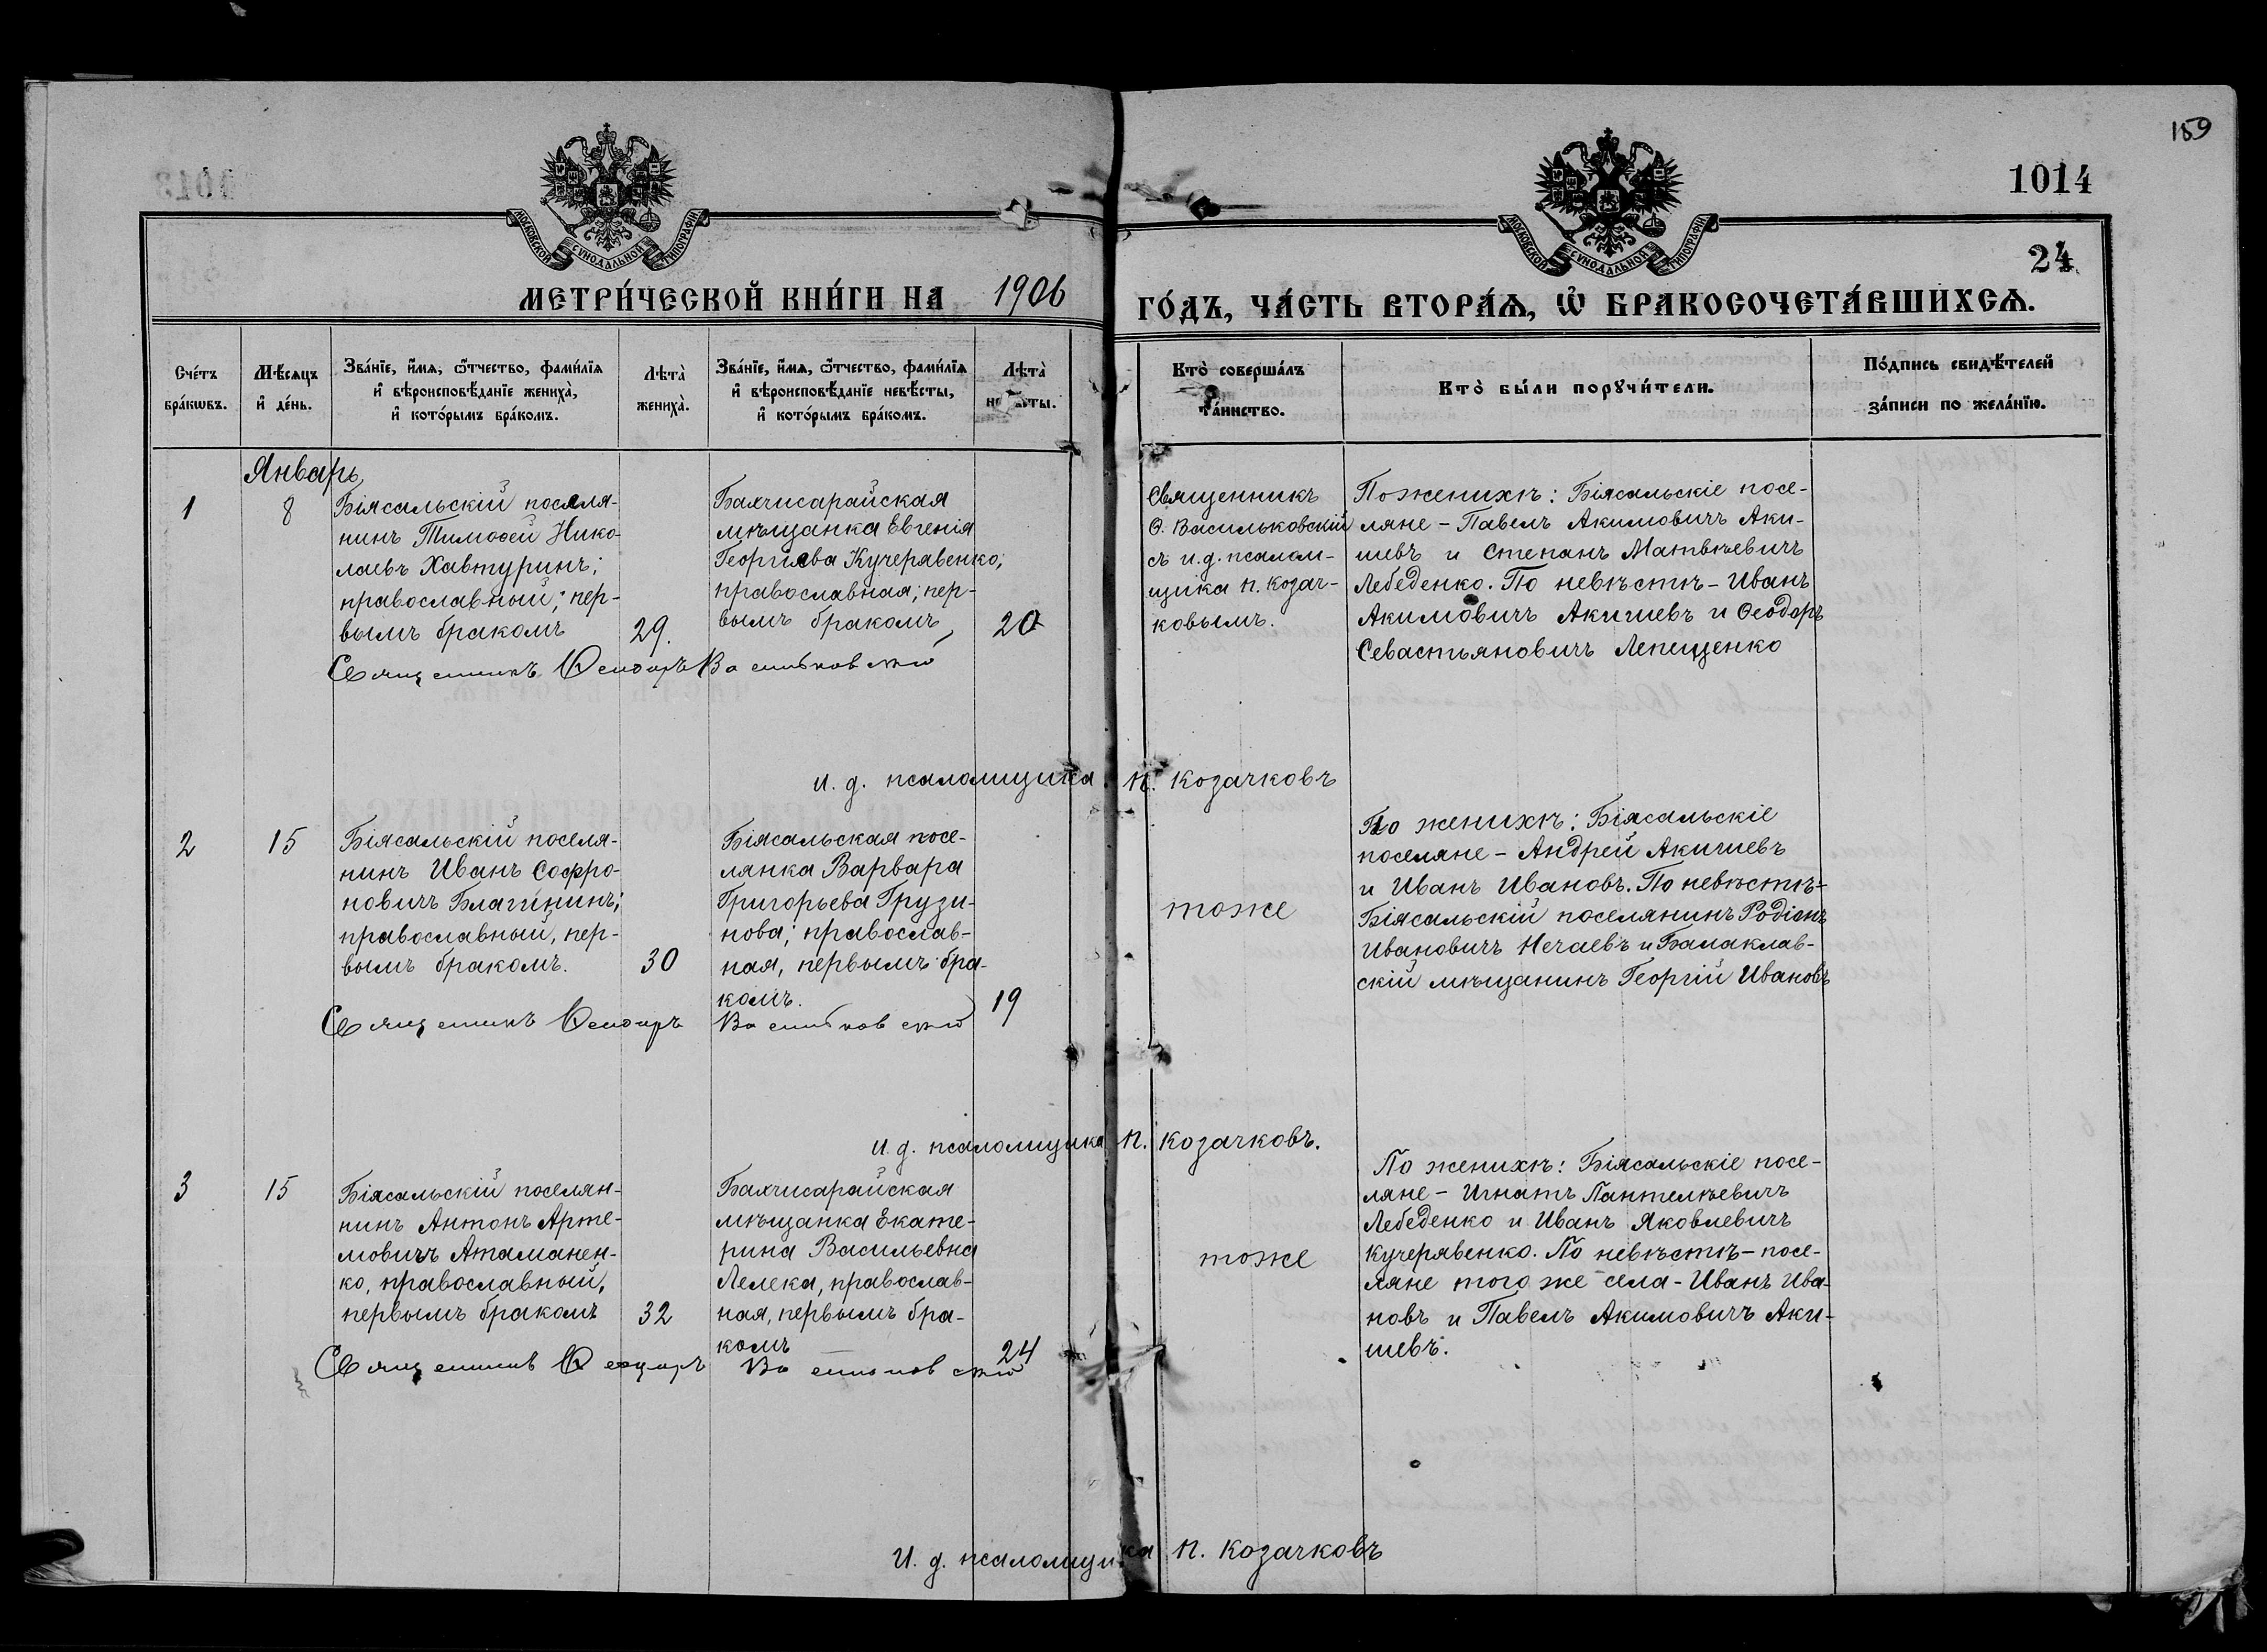 159
1014
24
МОСКОВСКОЙ СѴНОДАЛЬНОЙ ТИПОГРАФІИ
МОСКОВСКОЙ СѴНОДАЛЬНОЙ ТИПОГРАФІИ
МЕТРИ́ЧЕСКОЙ КНИ́ГИ НА 1906 ГО́ДЪ, ЧА́СТЬ ВТОРА́Ѧ, Ѡ҆ БРАКОСОЧЕТА́ВШИХСѦ.
Сче́тъ
бра́кѡвъ.
Мѣ́сяцъ
и҆ де́нь.
Зва́нїе, и҆́мѧ, ѻ҆́тчество, фами́лїѧ
и҆ вѣроисповѣ́данїе жениха̀,
и҆ кото́рымъ бра́комъ.
Лѣта̀
жениха̀.
Зва́нїе, и҆́мѧ, ѻ҆́тчество, фами́лїѧ
и҆ вѣроисповѣ́данїе невѣ́сты,
и҆ кото́рымъ бра́комъ.
Лѣта̀
невѣ́сты.
Кто̀ соверша́лъ
та́инство.
Кто̀ бы́ли порꙋчи́тели.
По́дпись свидѣ́телей
за́писи по жела́нїю.
Январь
1
8
Біясальскій поселя-
нинъ Тимоѳей Нико-
лаевъ Хавтуринъ;
православный; пер-
вымъ бракомъ
29.
Бахчисарайская
мѣщанка Евгенія
Георгіева Кучерявенко;
православная; пер-
вымъ бракомъ,
20
Священникъ
Ѳ. Васильковскій
съ и.д. псалом-
щика П. Козач-
ковымъ.
По женихѣ: Біясальскіе посе-
ляне - Павелъ Акимовичъ Аки-
шевъ и Степанъ Матвѣевичъ
Лебеденко. По невѣстѣ - Иванъ
Акимовичъ Акишевъ и Ѳеодоръ
Севастьяновичъ Лепещенко
Священникъ Ѳеодоръ Васильковскій
и. д. псаломщика П. Козачковъ
2
15
Біясальскій поселя-
нинъ Иванъ Софро-
новичъ Благининъ;
православный, пер-
вымъ бракомъ.
30
Біясальская посе-
лянка Варвара
Григорьева Грузи-
нова; православ-
ная, первымъ бра-
комъ.
19
тоже
По женихѣ: Біясальскіе
поселяне - Андрей Акишевъ
и Иванъ Ивановъ. По невѣстѣ-
Біясальскій поселянинъ Родіонъ
Ивановичъ Нечаевъ и Балаклав-
скій мѣщанинъ Георгій Ивановъ
Священникъ Ѳеодоръ Васильковскій
и. д. псаломщика П. Козачковъ.
3
15
Біясальскій поселян-
нинъ Антонъ Арте-
мовичъ Атаманен-
ко, православный,
первымъ бракомъ
32
Бахчисарайская
мѣщанка Екате-
рина Васильевна
Лелека, православ-
ная, первымъ бра-
комъ
24
тоже
По женихѣ: Біясальскіе посе-
ляне - Игнатъ Пантелѣевичъ
Лебеденко и Иванъ Яковлевичъ
Кучерявенко. По невѣстѣ - посе-
ляне того же села - Иванъ Ива-
новъ и Павелъ Акимовичъ Аки-
шевъ.
Священникъ Ѳеодоръ Васильковскій
И. д. псаломщика П. Козачковъ